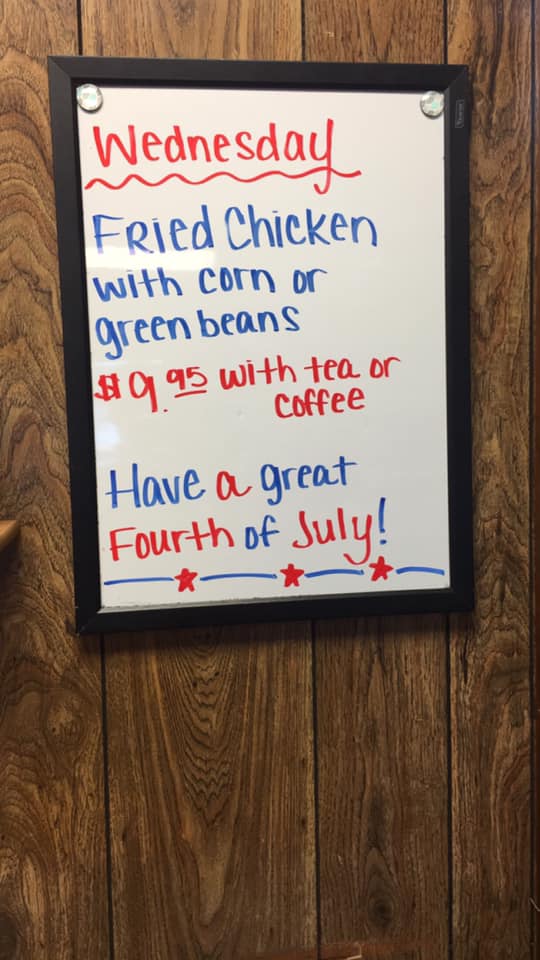 Wednesday
Fried Chicken
with corn or
green beans
$9.95 with tea or
coffee
Have a great
Fourth of July!